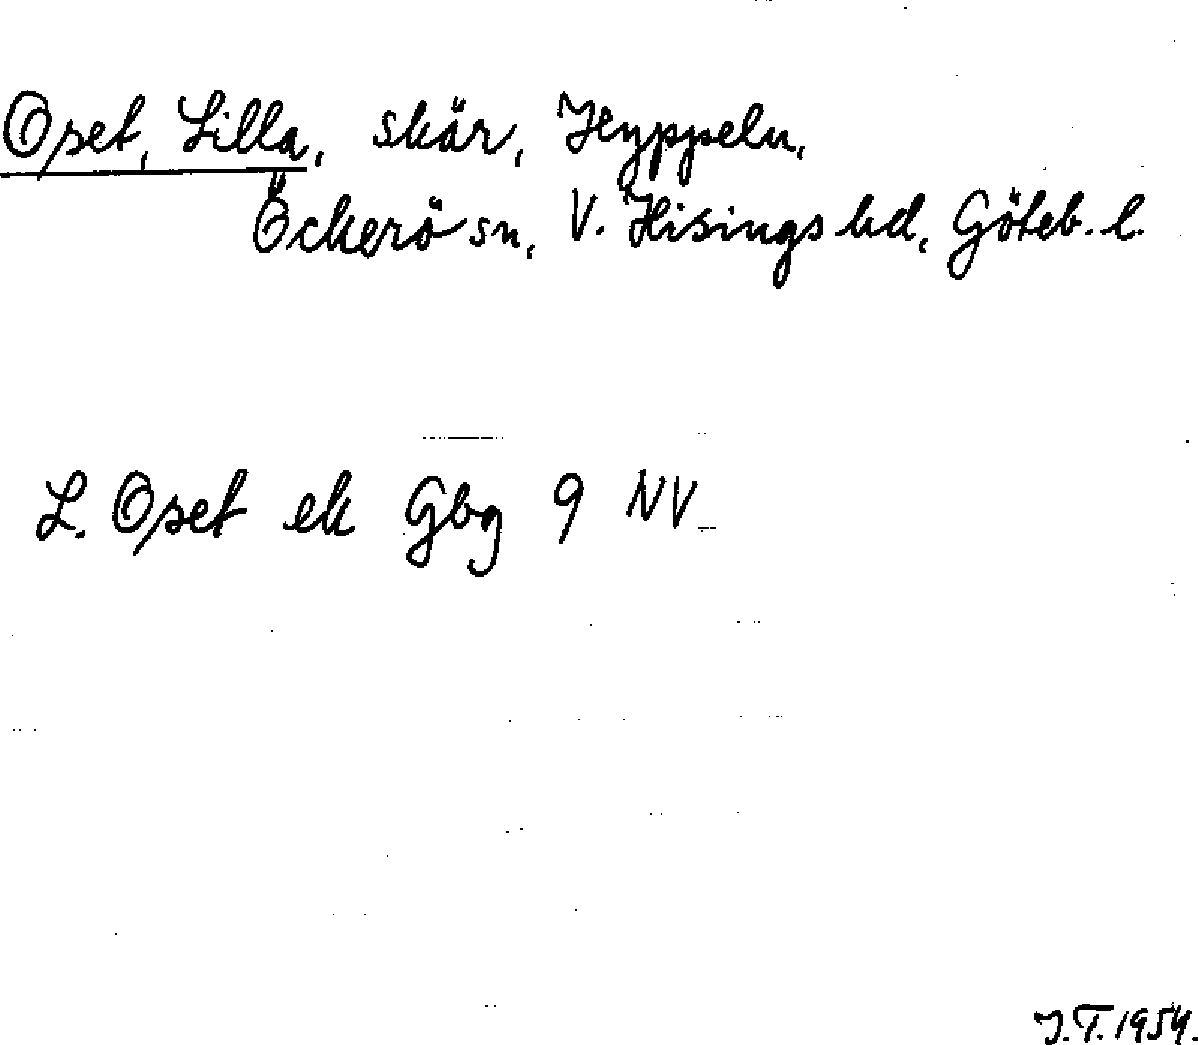 Opet, Lilla, skär, Hyppeln,
Öckerö sn, V. Hisings hd, Göteb. l.
L. Opet ek Gbg 9 NV
J.T. 1954.